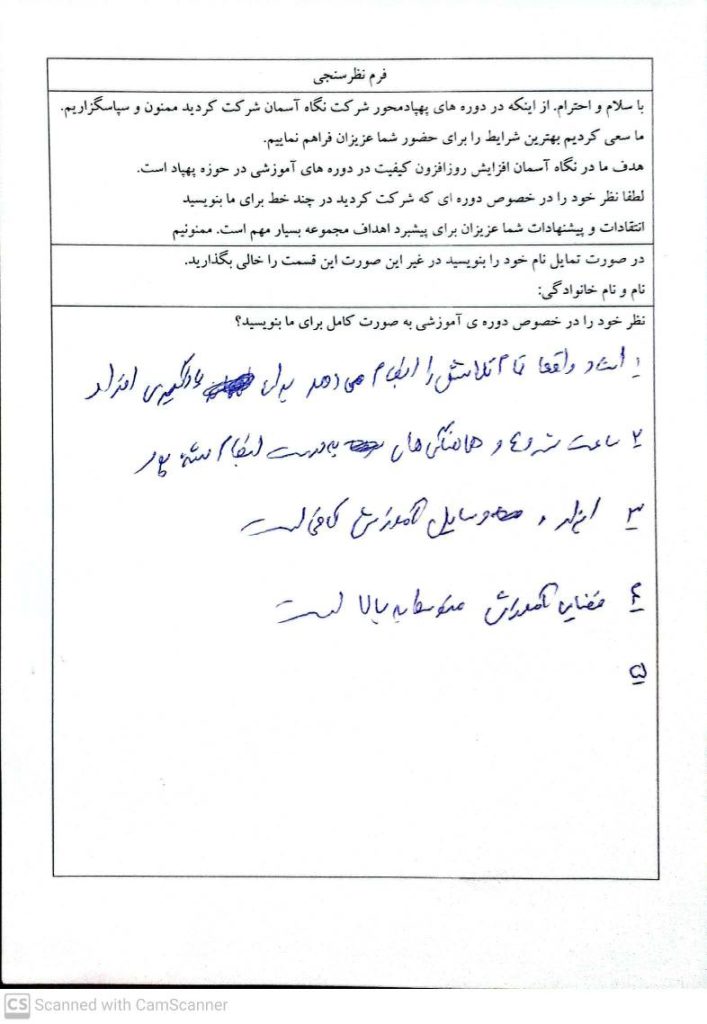 فرم نظرسنجی
با سلام و احترام. از اینکه در دوره های پهپادمحور شرکت نگاه آسمان شرکت کردید ممنون و سپاسگزاریم.
ما سعی کردیم بهترین شرایط را برای حضور شما عزیزان فراهم نماییم.
هدف ما در نگاه آسمان افزایش روزافزون کیفیت در دوره های آموزشی در حوزه پهپاد است.
لطفا نظر خود را در خصوص دوره ای که شرکت کردید در چند خط برای ما بنویسید
انتقادات و پیشنهادات شما عزیزان برای پیشبرد اهداف مجموعه بسیار مهم است. ممنونیم
در صورت تمایل نام خود را بنویسید در غیر این صورت این قسمت را خالی بگذارید.
نام و نام خانوادگی:
نظر خود را در خصوص دوره ی آموزشی به صورت کامل برای ما بنویسید؟
۱ استاد واقعا تمام تلاشش را انجام می دهد برای یادگیری افراد
۲ ساعت شروع و هماهنگی های به درستی انجام شده بود
۳ ابزار و وسایل آموزش کافی است
۴ فضای آموزش متوسط به بالا است
۵
CS Scanned with CamScanner